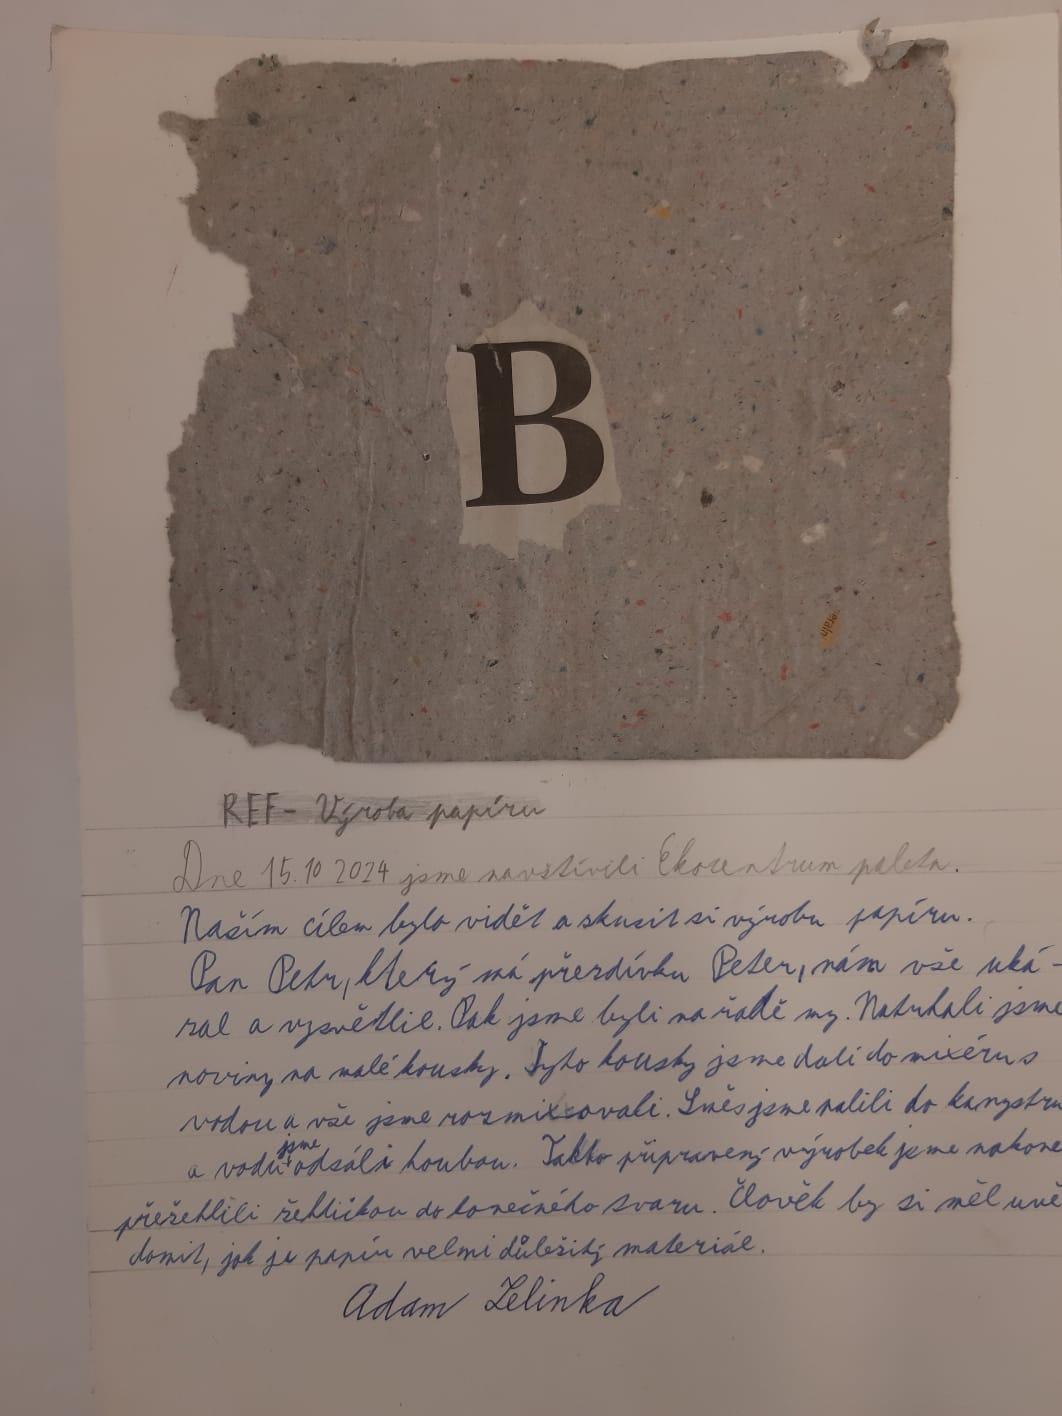 B
erain
REF- Výroba papíru
Dne 15.10 2024 jsme navštívili Ekocentrum paleta.
Naším cílem bylo vidět a skusit si výrobu papíru.
Pan Petr, který má přezdívku Peter, nám vše uká-
zal a vysvětlil. Pak jsme byli na řadě my. Natrhali jsme
noviny na malé kousky. Tyto kousky jsme dali do mixéru s
vodou a vše jsme rozmixovali. Směs jsme nalili do kanystru
a vodu jsme odsáli houbou. Takto připravený výrobek jsme nakone
přežehlili žehličkou do konečného tvaru. Člověk by si měl uvě
domit, jak je papír velmi důležitý materiál.
Adam Zelinka